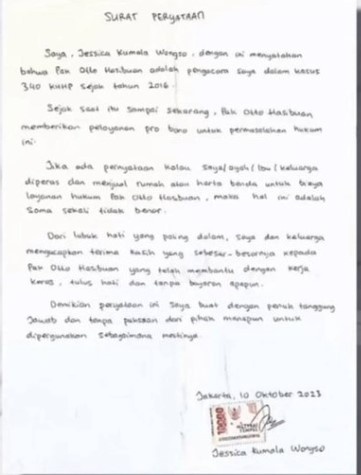 SURAT PERYATAAN
Saya, Jessica Kumala Wongso, dengan ini menyatakan
bahwa Pak Otto Hasibuan adalah pengacara saya dalam kasus
340 KUHP sejak tahun 2016.
Sejak saat itu sampai sekarang, Pak Otto Hasibuan
memberikan pelayanan pro bono untuk permasalahan hukum
ini.
Jika ada pernyataan kalau saya/ayah/ibu/keluarga
diperas dan menjual rumah atau harta benda untuk biaya
layanan hukum Pak Otto Hasibuan, maka hal ini adalah
sama sekali tidak benar.
Dari lubuk hati yang paling dalam, saya dan keluarga
mengucapkan terima kasih yang sebesar-besarnya kepada
Pak Otto Hasibuan yang telah membantu dengan kerja
keras, tulus hati dan tanpa bayaran apapun.
Demikian peryataan ini saya buat dengan penuh tanggung
jawab dan tanpa paksaan dari pihak manapun untuk
dipergunakan sebagaimana mestinya.
Jakarta, 10 Oktober 2023
10000
TEMPEL
Jessica Kumala Wongso